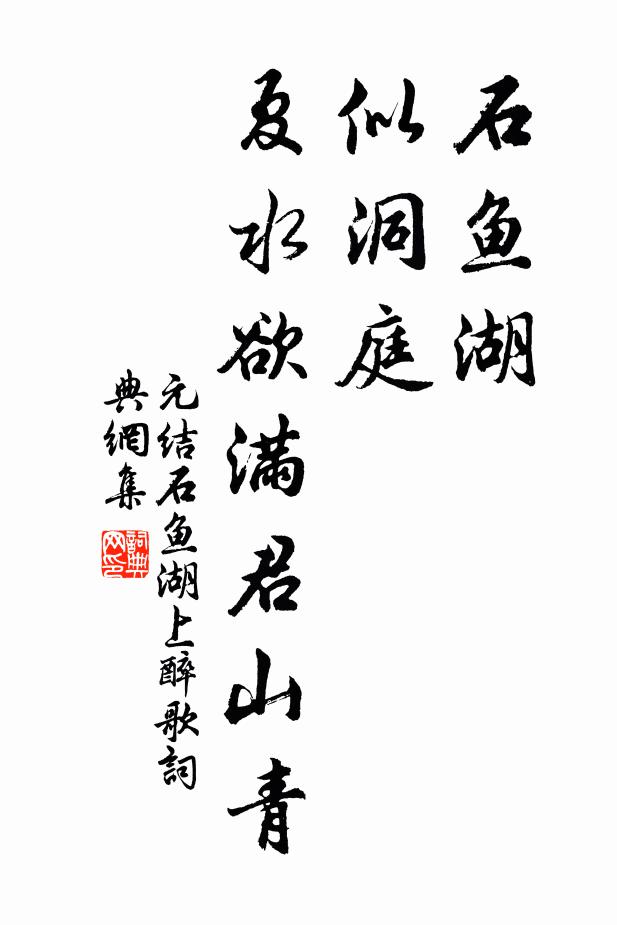 石鱼湖
似洞庭
夏水欲满君山青
元结石鱼湖上醉歌词
典網集
詞典网印